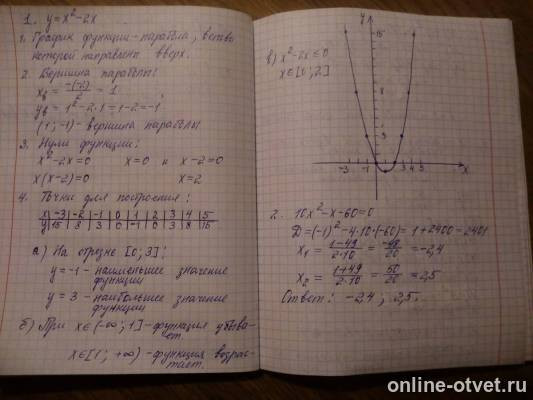 1. y=x²-2x
1. График функции - парабола, ветви
которой направлены вверх.
2. Вершина параболы:
xв = -(-2)/2 = 1
yв = 1²-2·1=1-2=-1
(1; -1) - вершина параболы
3. Нули функции:
x²-2x=0 x=0 и x-2=0
x(x-2)=0 x=2
4. Точки для построения:
x|-3|-2|-1|0|1|2|3|4|5
y|15|8|3|0|-1|0|3|8|15
а) На отрезке [0; 3]:
y=-1 - наименьшее значение
функции
y=3 - наибольшее значение
функции
б) При x∈(-∞; 1] - функция убыва-
ет.
x∈[1; +∞) - функция возрас-
тает.
в) x²-2x≤0
x∈[0; 2]
y
15
8
3
-3 3 4 5 x
2. 10x²-x-60=0
D=(-1)²-4·10·(-60)=1+2400=2401
x₁ = 1-49/2·10 = -48/20 = -2,4
x₂ = 1+49/2·10 = 50/20 = 2,5
Ответ: -2,4; 2,5.
online-otvet.ru